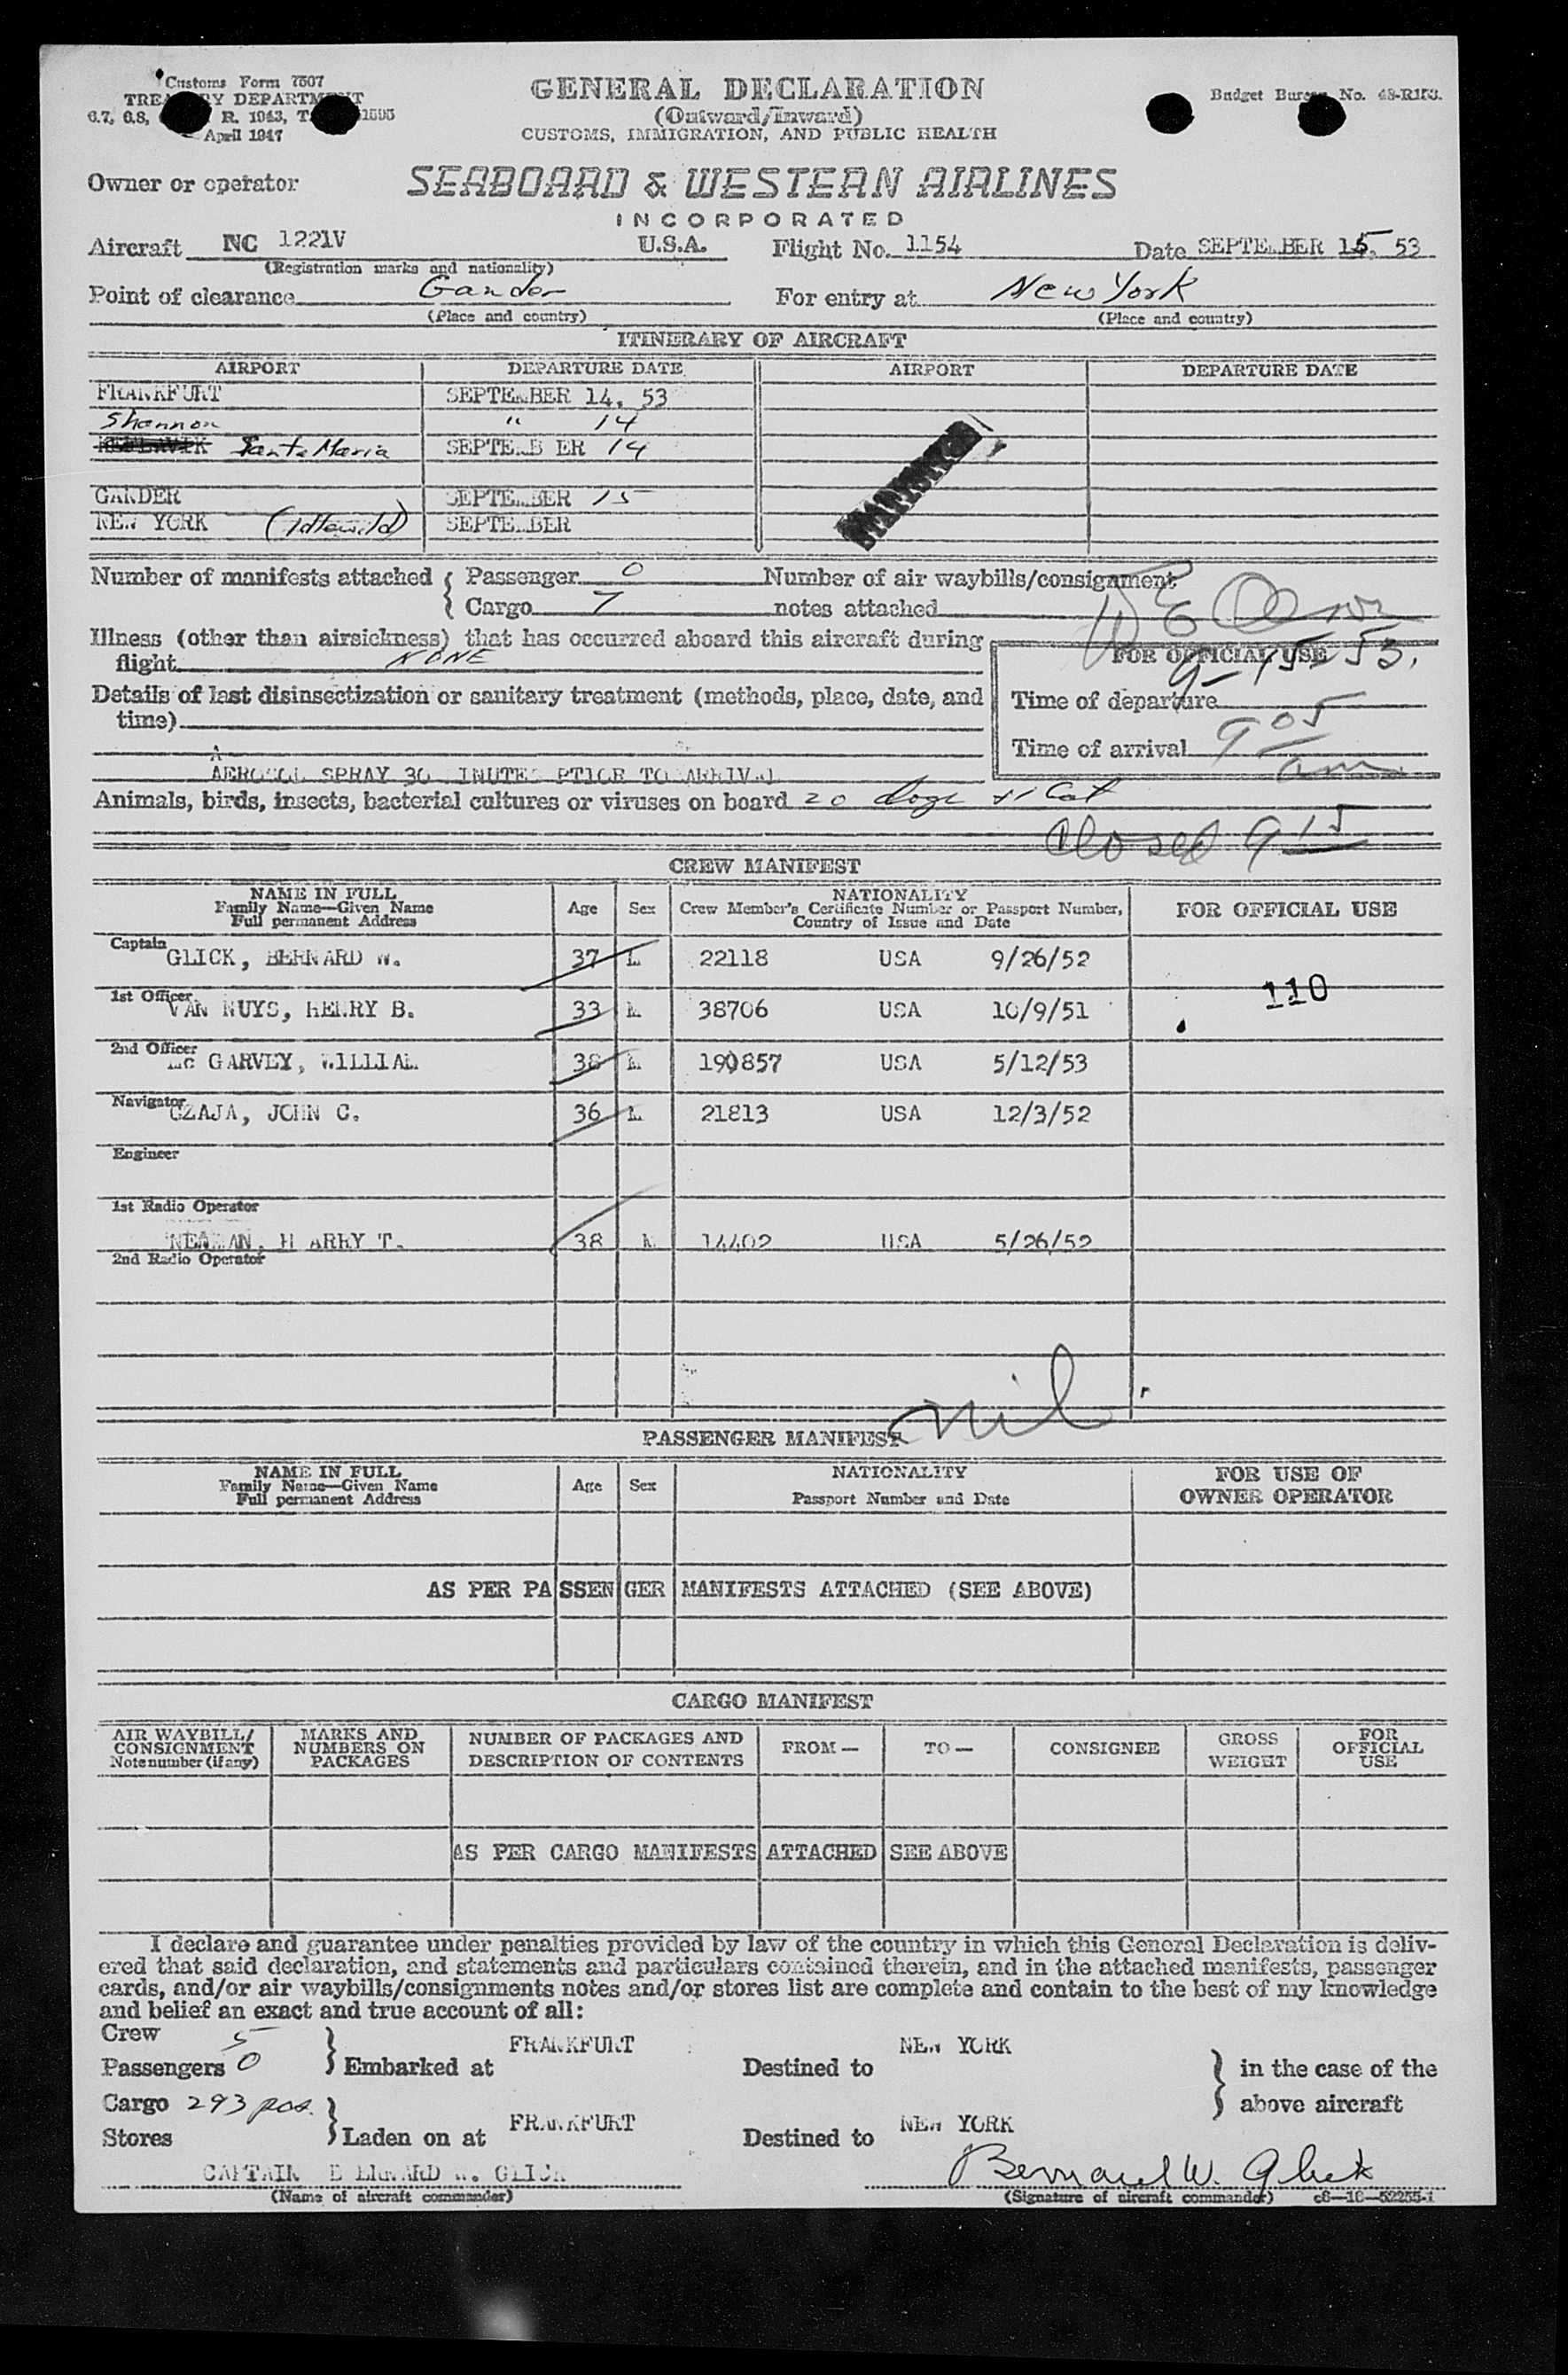 Customs Form 7507
TREASURY DEPARTMENT
April 1947
GENERAL DECLARATION
(Outward/Inward)
CUSTOMS, IMMIGRATION, AND PUBLIC HEALTH
Budget Bureau No. 48-R153.
Owner or operator SEABOARD & WESTERN AIRLINES
INCORPORATED
Aircraft NC 1221V U.S.A. Flight No. 1154 Date SEPTEMBER 15, 53
(Registration marks and nationality)
Point of clearance Gander For entry at New York
(Place and country) (Place and country)
ITINERARY OF AIRCRAFT
AIRPORT DEPARTURE DATE AIRPORT DEPARTURE DATE
FRANKFURT SEPTEMBER 14, 53
Shannon " 14
Santa Maria SEPTEMB ER 14
GANDER SEPTEMBER 15
NEW YORK (Idlewild) SEPTEMBER
Number of manifests attached { Passenger 0 Number of air waybills/consignment
Cargo 7 notes attached
Illness (other than airsickness) that has occurred aboard this aircraft during
flight NONE
FOR OFFICIAL USE
9-15-53.
Details of last disinsectization or sanitary treatment (methods, place, date, and
time)
Time of departure
Time of arrival 9 05 am
A
AEROSOL SPRAY 30 MINUTES PTIOR TO ARRIVAL
Animals, birds, insects, bacterial cultures or viruses on board 20 dogs + 1 Cat
Closed 9 15
CREW MANIFEST
NAME IN FULL
Family Name—Given Name
Full permanent Address
Age Sex
NATIONALITY
Crew Member's Certificate Number or Passport Number,
Country of Issue and Date
FOR OFFICIAL USE
Captain GLICK, BERNARD W. 37 M 22118 USA 9/26/52
110
1st Officer VAN NUYS, HENRY B. 33 M 38706 USA 10/9/51
2nd Officer Mc GARVEY, WILLIAM 38 M 190857 USA 5/12/53
Navigator CZAJA, JOHN C. 36 M 21813 USA 12/3/52
Engineer
1st Radio Operator
NEWMAN, H ARRY T. 38 M 14402 USA 5/26/52
2nd Radio Operator
nil
PASSENGER MANIFEST
NAME IN FULL
Family Name—Given Name
Full permanent Address
Age Sex
NATIONALITY
Passport Number and Date
FOR USE OF
OWNER OPERATOR
AS PER PASSENGER MANIFESTS ATTACHED (SEE ABOVE)
CARGO MANIFEST
AIR WAYBILL/
CONSIGNMENT
Note number (if any)
MARKS AND
NUMBERS ON
PACKAGES
NUMBER OF PACKAGES AND
DESCRIPTION OF CONTENTS
FROM— TO— CONSIGNEE
GROSS
WEIGHT
FOR
OFFICIAL
USE
AS PER CARGO MANIFESTS ATTACHED SEE ABOVE
I declare and guarantee under penalties provided by law of the country in which this General Declaration is deliv-
ered that said declaration, and statements and particulars contained therein, and in the attached manifests, passenger
cards, and/or air waybills/consignments notes and/or stores list are complete and contain to the best of my knowledge
and belief an exact and true account of all:
Crew 5
Passengers 0 } Embarked at FRANKFURT Destined to NEW YORK } in the case of the
above aircraft
Cargo 293 pcs.
Stores } Laden on at FRANKFURT Destined to NEW YORK
CAPTAIN BERNARD W. GLICK Bernard W. Glick
(Name of aircraft commander) (Signature of aircraft commander) c8—16—52255-1